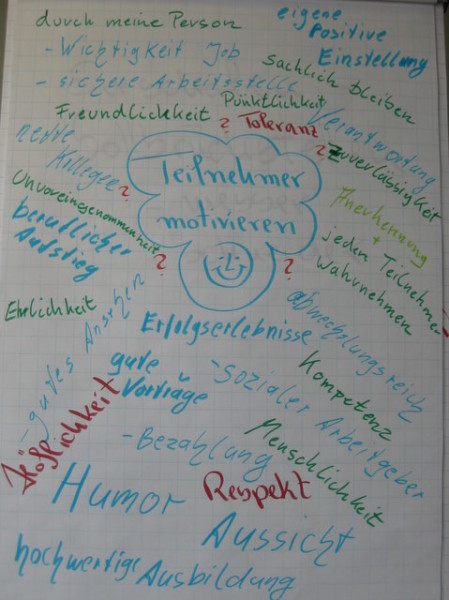 durch meine Person
eigene
Positive
Einstellung
- Wichtigkeit Job
- sichere Arbeitsstelle
sachlich bleiben
Freundlichkeit
Pünktlichkeit
Verantwortung
? Toleranz
?
Zuverlässigkeit
nette
Kollegen
?
Teilnehmer
motivieren
Anerkennung
+
jeden Teilnehmer
wahrnehmen
Unvoreingenommenheit
beruflicher
Aufstieg
?
?
Ehrlichkeit
- gutes Ansehen
Erfolgserlebnisse
abwechslungsreich
gute
Vorträge
- Sozialer Arbeitgeber
Kompetenz
Höflichkeit
- Bezahlung
Menschlichkeit
Humor
Respekt
Aussicht
hochwertige
Ausbildung